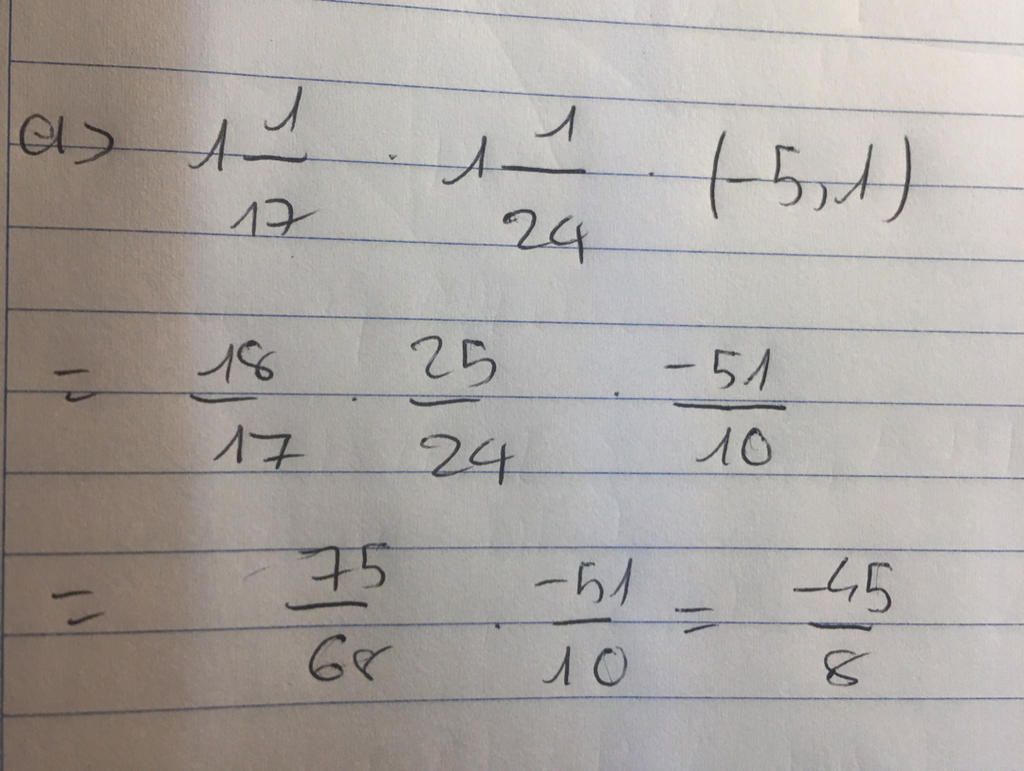 a> 1 1/17 . 1 1/24 . (-5,1)
= 18/17 . 25/24 . -51/10
= 75/68 . -51/10 = -45/8